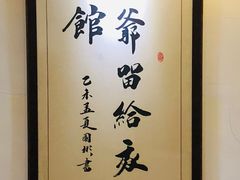 爺留給我
館
乙未孟夏国彬書